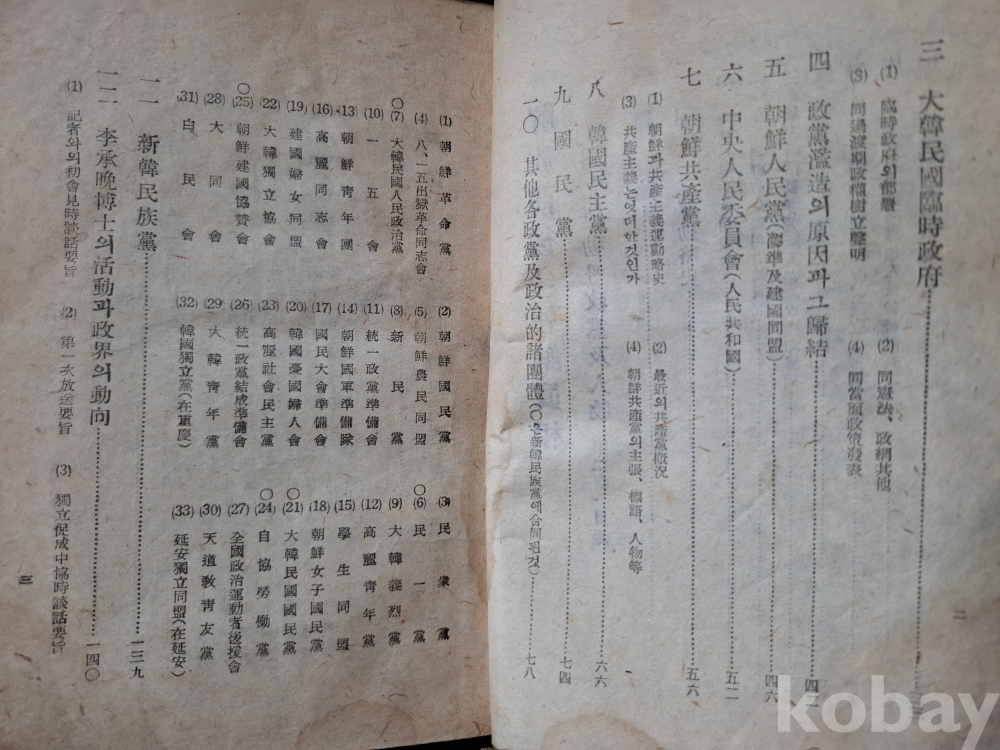 三 大韓民國臨時政府
(1) 臨時政府의部署
(2) 同憲法、政綱其他
(3) 同過渡期政權樹立聲明
(4) 同當面政策發表
四 政黨濫造의原因과그歸結 四二
五 朝鮮人民黨(濟準及建國同盟) 四六
六 中央人民委員會(人民共和國) 五二
七 朝鮮共産黨 五六
(1) 朝鮮과共産主義運動略史
(2) 最近의共産黨槪況
(3) 共産主義는엇더한것인가
(4) 朝鮮共産黨의主張、標語、人物等
八 韓國民主黨 六六
九 國民黨 七四
一〇 其他各政黨及政治的諸團體(〇은新韓民族黨에合同된것) 七八
二
(1) 朝鮮革命黨
(2) 朝鮮國民黨
(3) 民衆黨
(4) 八、一五出獄革命同志會
(5) 朝鮮農民同盟
〇(6) 民一黨
〇(7) 大韓民國人民政治黨
(8) 新民黨
(9) 大韓義烈黨
(10) 一五會
(11) 統一政黨準備會
(12) 高麗靑年黨
(13) 朝鮮靑年團
(14) 朝鮮國軍準備隊
(15) 學生同盟
(16) 高麗同志會
(17) 國民大會準備會
(18) 朝鮮女子國民黨
(19) 建國婦女同盟
(20) 韓國愛國婦人會
〇(21) 大韓民國國民黨
(22) 大韓獨立協會
(23) 高麗社會民主黨
〇(24) 自協勞働黨
〇(25) 朝鮮建國協贊會
(26) 統一政黨結成準備會
(27) 全國政治運動者後援會
(28) 大同會
(29) 大韓靑年黨
(30) 天道敎靑友黨
(31) 白民會
(32) 韓國獨立黨(在重慶)
(33) 延安獨立同盟(在延安)
一一 新韓民族黨 一三九
一二 李承晩博士의活動과政界의動向 一四〇
(1) 記者와의初會見時談話要旨
(2) 第一次放送要旨
(3) 獨立促成中協時談話要旨
三
kobay